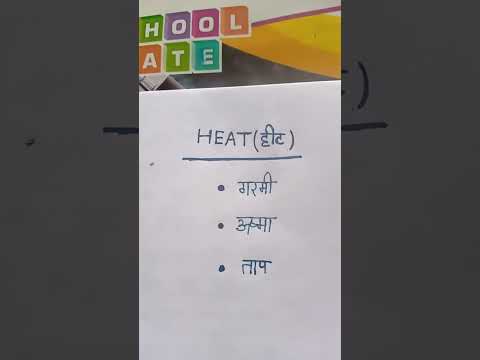 HOOL
ATE
HEAT (हीट)
• गरमी
• ऊष्मा
• ताप